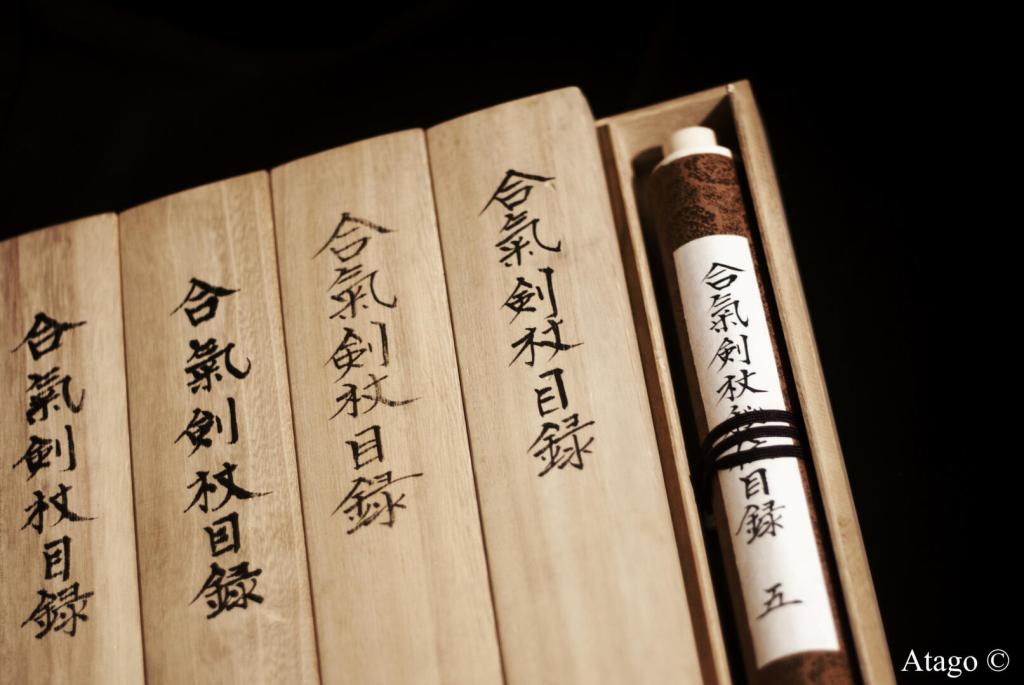 合氣剣杖目録 五
合氣剣杖目録
合氣剣杖目録
合氣剣杖目録
合氣剣杖目録
Atago ©